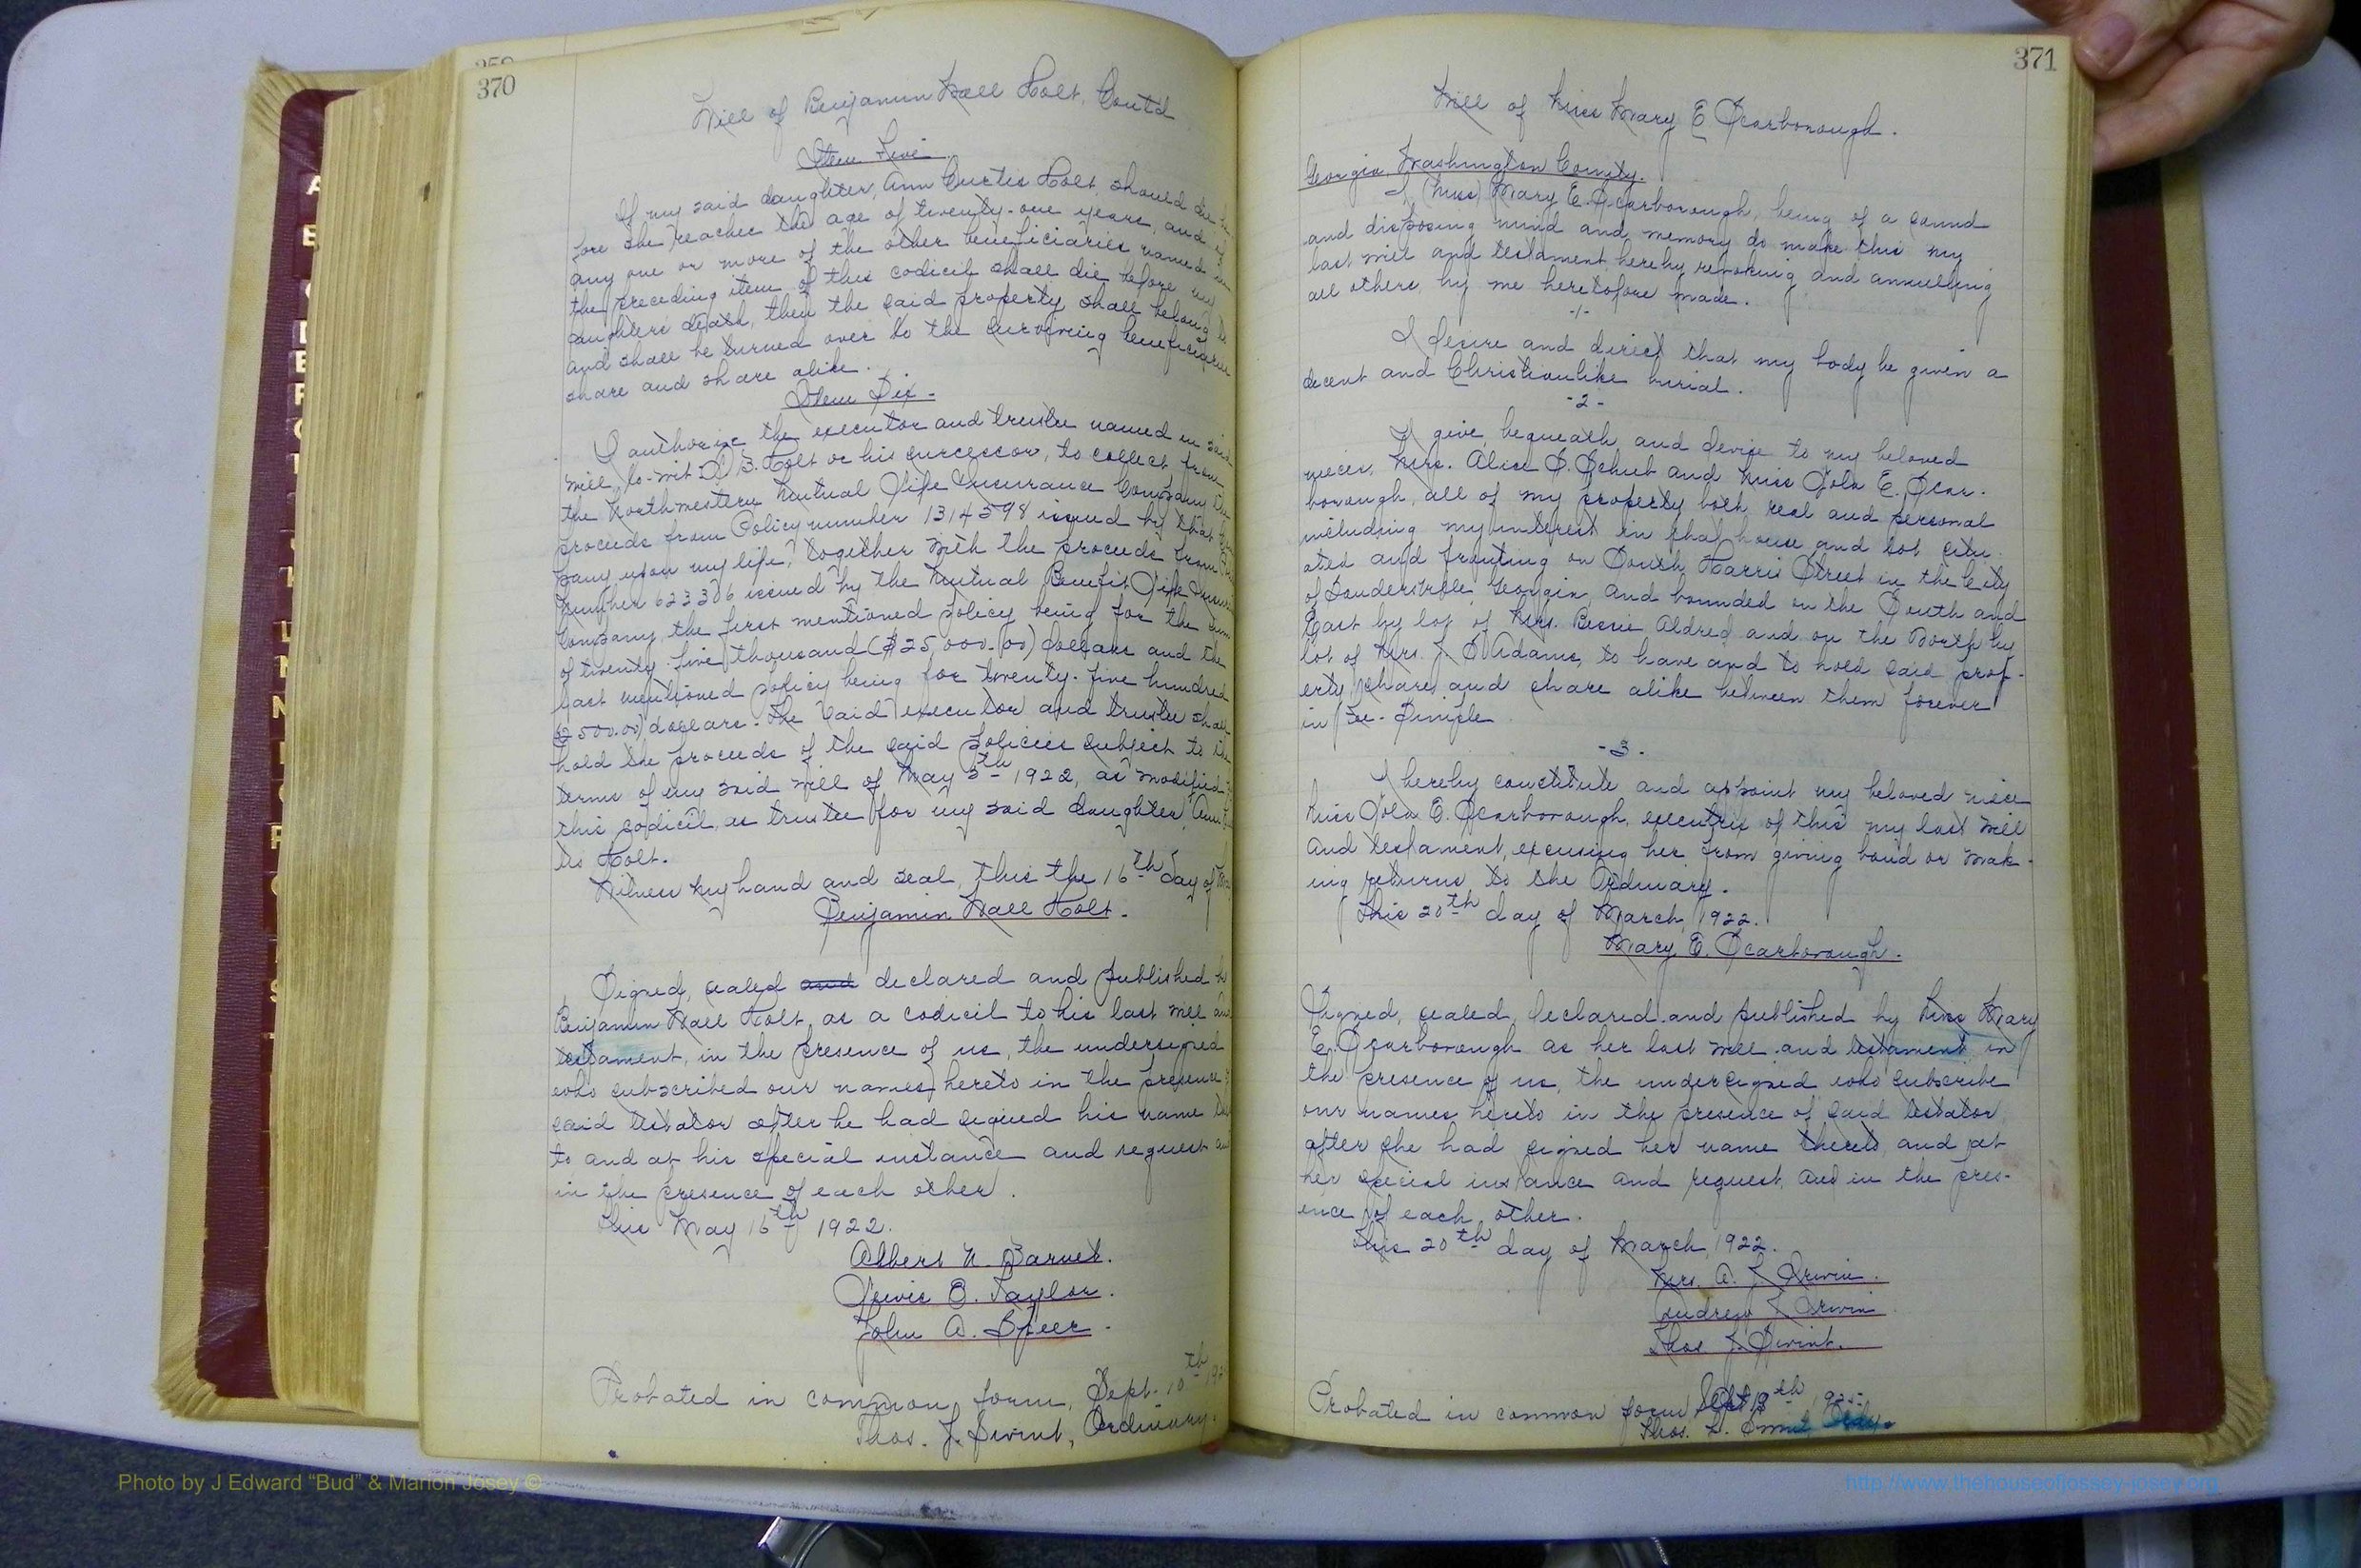 358
370
Will of Benjamin Hall Holt, Cont'd
Item Five.
If my said daughter, Ann Curtis Holt, should die be-
fore she reaches the age of twenty-one years, and if
any one or more of the other beneficiaries named in
the preceding item of this codicil shall die before my
daughters death, then the said property shall belong to
and shall be turned over to the surviving beneficiaries
share and share alike.
Item Six.
I authorize the executor and trustee named in said
will, to-wit B. Holt or his successor, to collect from
the Northwestern Mutual Life Insurance Company the
proceeds from Policy number 1314598 issued by that Com-
pany upon my life, together with the proceeds from
number 623306 issued by the Mutual Benefit Life Insurance
Company, the first mentioned policy being for the sum
of twenty-five thousand ($25,000.00) dollars and the
last mentioned policy being for twenty-five hundred
$2500.00) dollars. The said executor and trustee shall
hold the proceeds of the said policies subject to the
terms of my said will of May 5th 1922, as modified
this codicil, as trustee for my said daughter, Ann
tis Holt.
Witness my hand and seal, this the 16th day of
Benjamin Hall Holt.
Signed, sealed and declared and published
Benjamin Hall Holt, as a codicil to his last will and
testament, in the presence of us, the undersigned
who subscribed our names hereto in the presence
said testator after he had signed his name
to and at his special instance and request
in the presence of each other.
This May 16th 1922.
Albert N. Barnet.
Lewis O. Taylor.
John A. Speer.
Probated in common form, Sept. 10th 192
Thos. J. Swint, Ordinary.
371
Will of Miss Mary E Scarborough.
Georgia, Washington County.
I (Miss) Mary E. Scarborough, being of a sound
and disposing mind and memory do make this my
last will and testament hereby revoking and annulling
all others by me heretofore made.
-1-
I desire and direct that my body be given a
decent and Christianlike burial.
-2-
I give, bequeath and devise to my beloved
nieces, Mrs. Alice S. and Miss Iola E. Scar-
borough, all of my property both real and personal
including my interest in that house and lot situ-
ated and fronting on South Harris Street in the City
of Sandersville Georgia, and bounded on the South and
East by lot of Mrs. Bessie Aldred and on the North by
lot of Mrs. Adams, to have and to hold said prop-
erty, share and share alike between them forever
in Fee-Simple
-3-
I hereby constitute and appoint my beloved niece
Miss Iola E. Scarborough, executrix of this my last will
and testament, excusing her from giving bond or mak-
ing returns to the Ordinary.
This 20th day of March, 1922.
Mary E. Scarborough.
Signed, sealed, declared and published by Miss Mary
E. Scarborough as her last will and testament in
the presence of us, the undersigned who subscribe
our names hereto in the presence of said testator
after she had signed her name thereto, and at
her special instance and request, and in the pres-
ence of each other.
This 20th day of March, 1922.
Mrs. A. J. Irwin.
Andrew J. Irwin
Thos. J. Swint.
Probated in common form
Photo by J Edward “Bud” & Marion Josey ©
http://www.thehouseofjossey-josey.org